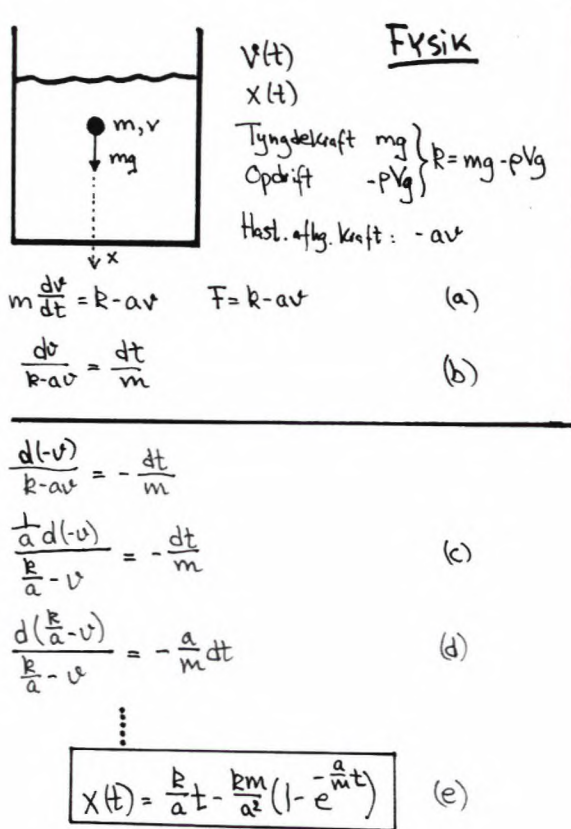 Fysik
v(t)
x(t)
m, v
mg
x
Tyngdekraft mg
Opdrift -ρVg } k = mg - ρVg
Hast. afhg. kraft: - av
m dv/dt = k - av F = k - av (a)
dv/(k-av) = dt/m (b)
d(-v)/(k-av) = - dt/m
(1/a d(-v))/(k/a - v) = - dt/m (c)
d(k/a - v)/(k/a - v) = - a/m dt (d)
x(t) = k/a t - km/a² (1 - e^(-a/m t)) (e)